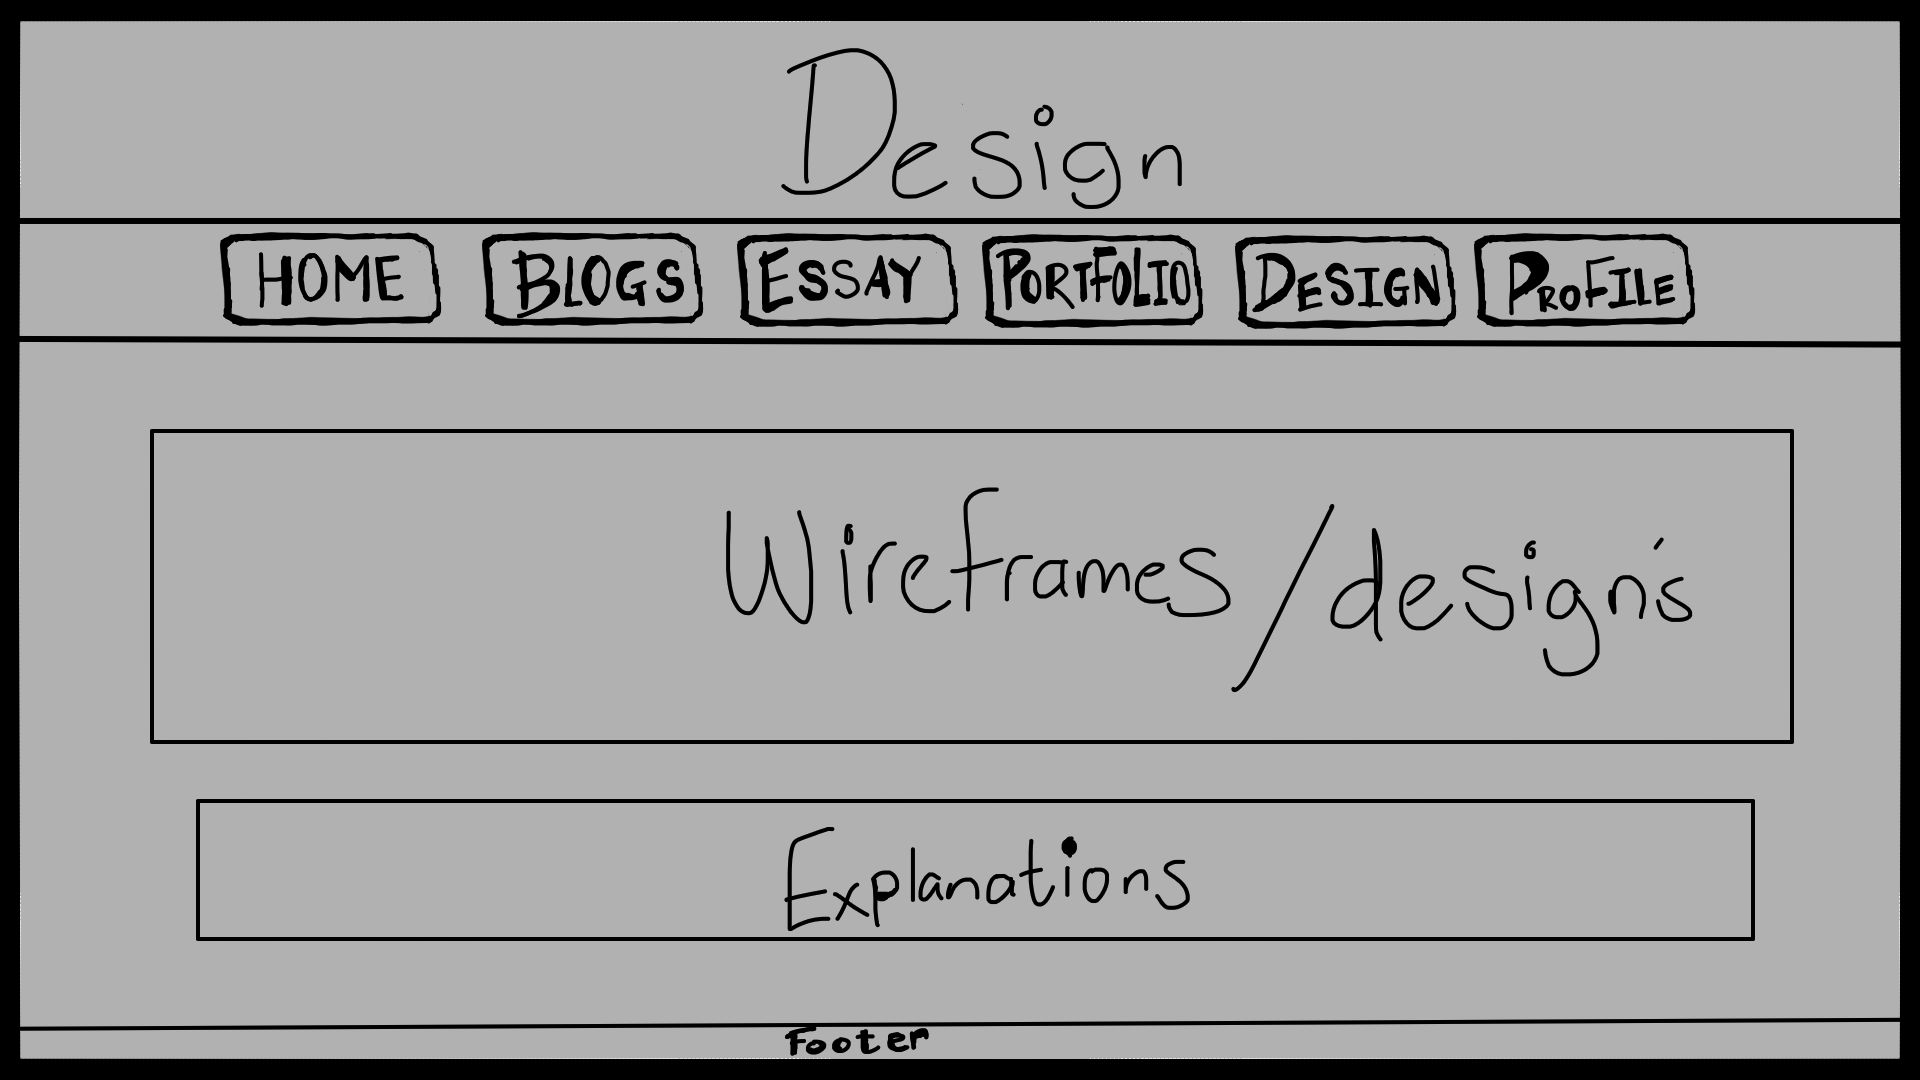 Design
HOME BLOGS ESSAY PORTFOLIO DESIGN PROFILE
Wireframes/design's
Explanations
Footer